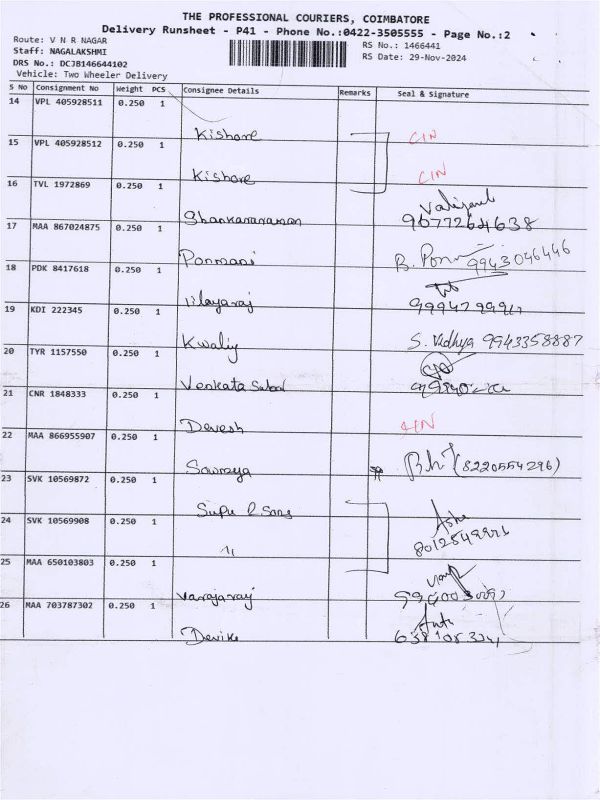 THE PROFESSIONAL COURIERS, COIMBATORE
Delivery Runsheet - P41 - Phone No.:0422-3505555 - Page No.:2
Route: V N R NAGAR
RS No.: 1466441
Staff: NAGALAKSHMI
RS Date: 29-Nov-2024
DRS No.: DCJB146644102
Vehicle: Two Wheeler Delivery
S No Consignment No Weight PCS Consignee Details Remarks Seal & Signature
14 VPL 405928511 0.250 1
Kishore CIN
15 VPL 405928512 0.250 1
Kishore CIN
16 TVL 1972869 0.250 1
Shankararaman 9677264638
17 MAA 867024875 0.250 1
Ponmani B. 9943046446
18 PDK 8417618 0.250 1
Ilayaraj
19 KDI 222345 0.250 1
Kwaliy S. Vidhya 9943358887
20 TYR 1157550 0.250 1
Venkata
21 CNR 1848333 0.250 1
Devesh
22 MAA 866955907 0.250 1
(8220554296)
23 SVK 10569872 0.250 1
& Sons
24 SVK 10569908 0.250 1
25 MAA 650103803 0.250 1
Varajaraj
26 MAA 703787302 0.250 1